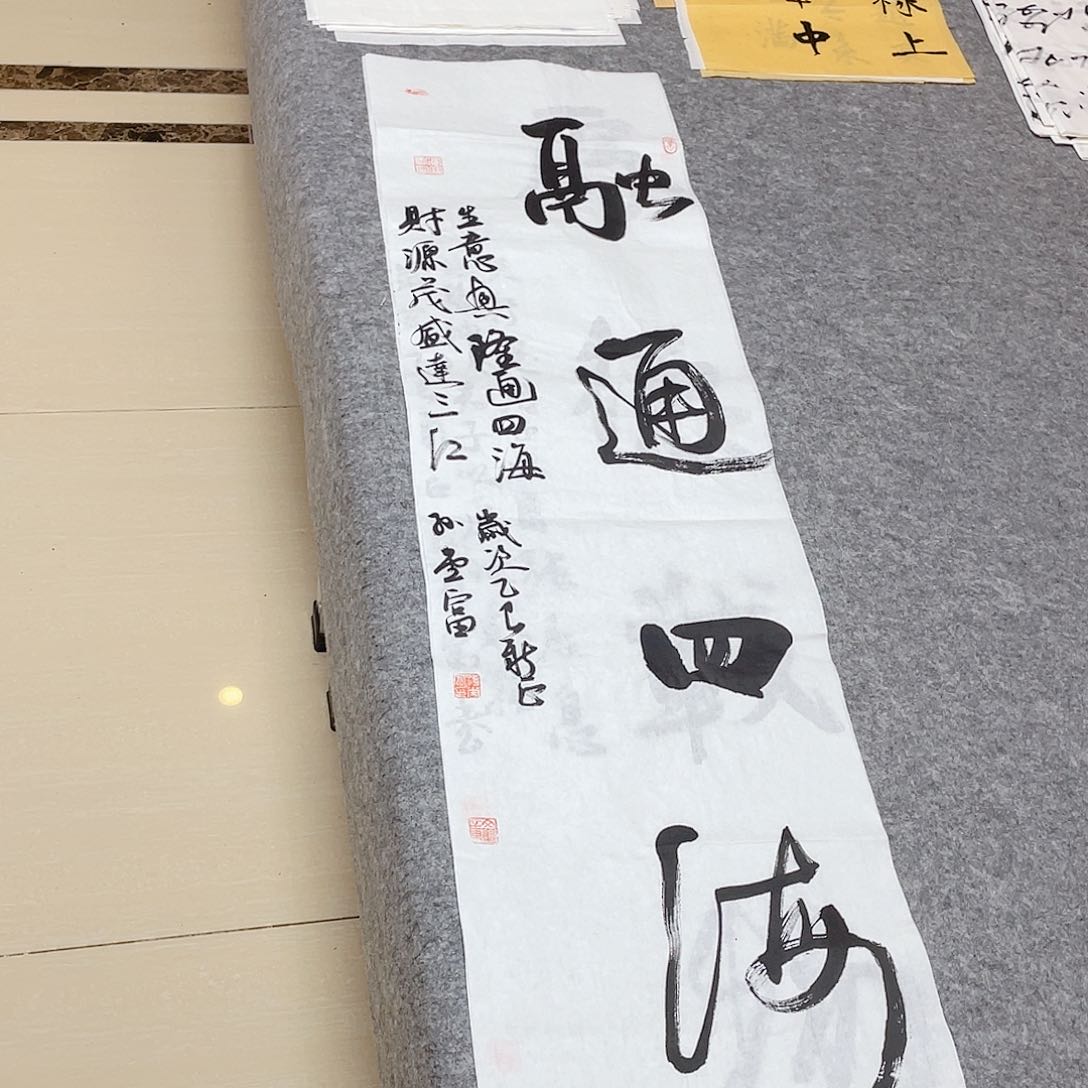 融通四海
生意興隆通四海
財源茂盛達三江
歲次乙巳新正
孙雲富
上
中